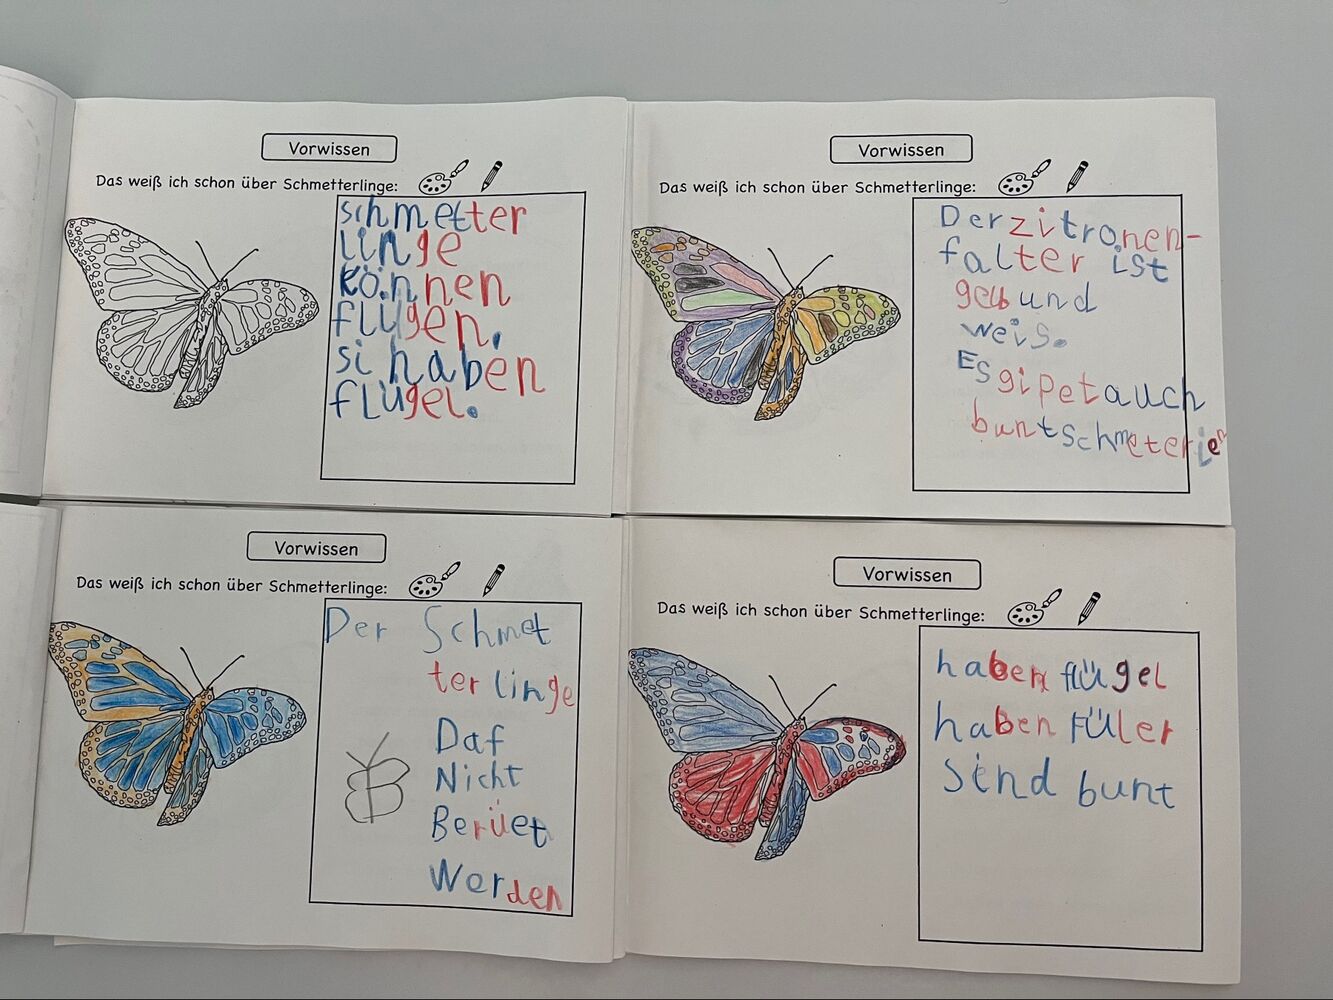 Vorwissen
Das weiß ich schon über Schmetterlinge:
schmetter
linge
können
flügen.
si haben
flügel.
Vorwissen
Das weiß ich schon über Schmetterlinge:
Der zitronen-
falter ist
gelb und
weis.
Es gipet auch
bunt schmeterien
Vorwissen
Das weiß ich schon über Schmetterlinge:
Der Schmet
ter linge
Daf
Nicht
Berüet
Werden
Vorwissen
Das weiß ich schon über Schmetterlinge:
haben flügel
haben füler
sind bunt